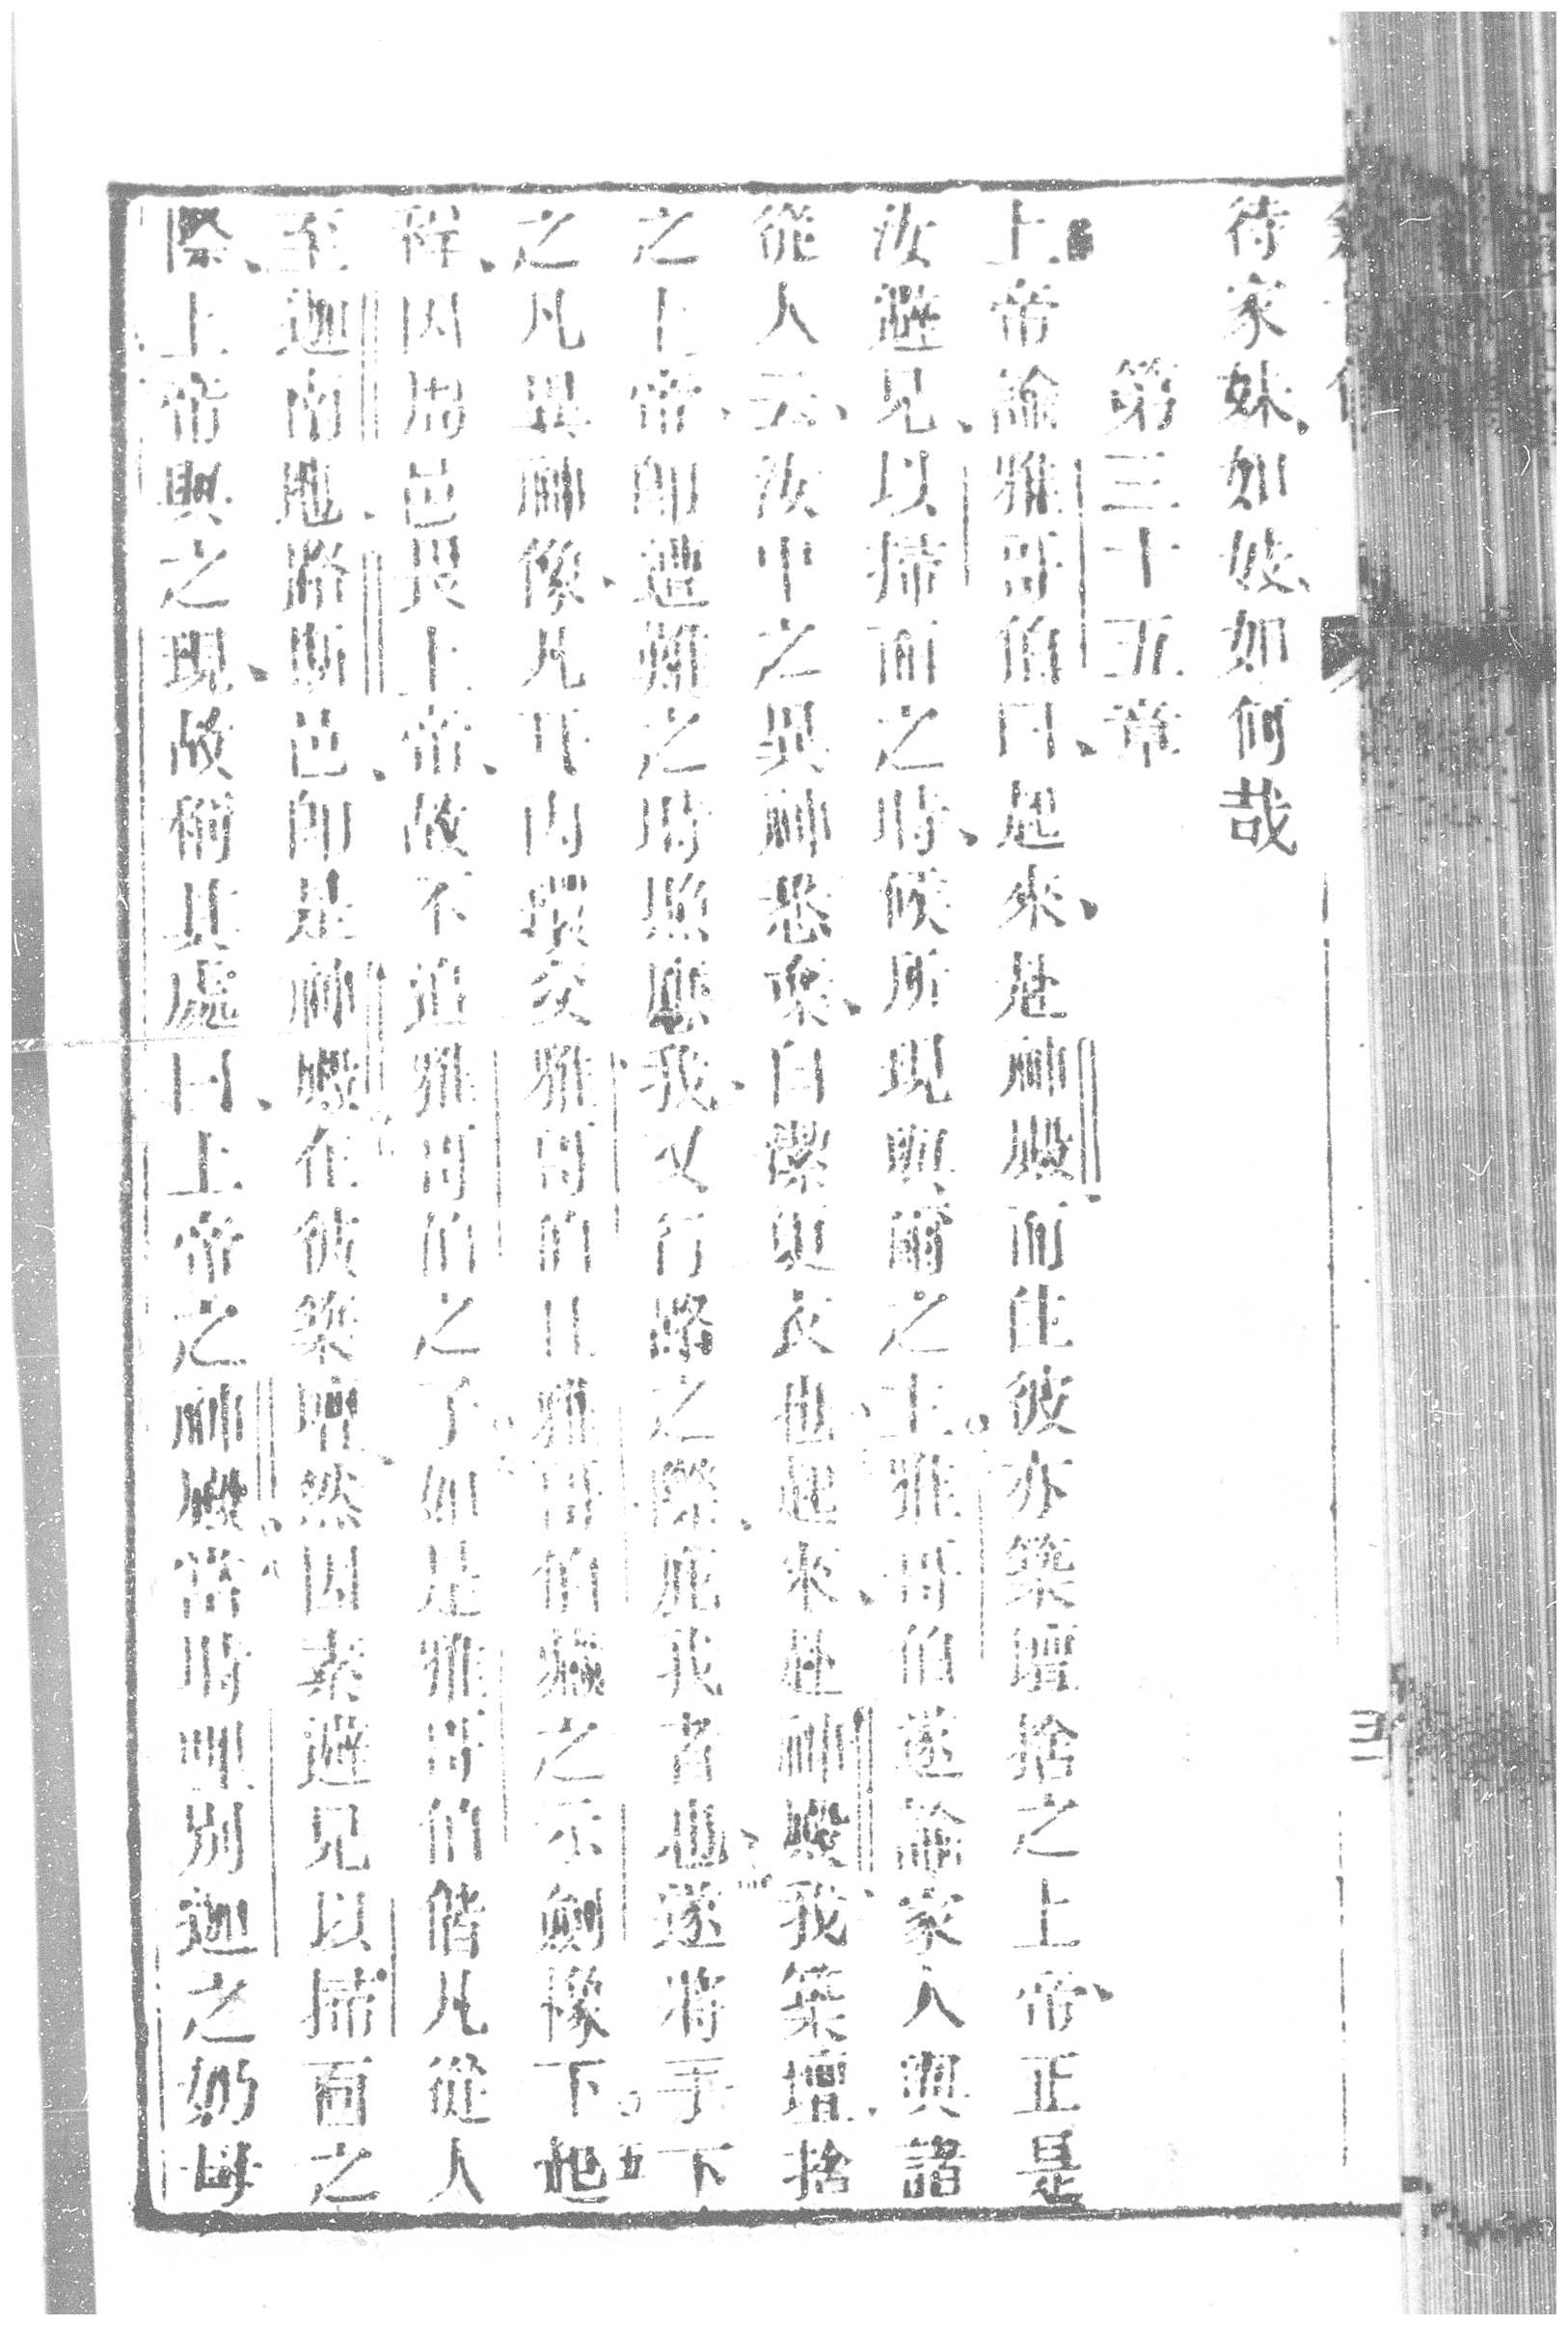 待家妹、如妓、如何哉
第三十五章
上帝諭雅哥伯曰、起來、赴神殿、而住彼亦築壇捨之上帝、正是
汝避兄、以掃面之時、候所現與爾之上。雅哥伯遂諭家人與諸
從人云、汝中之異神悉棄、自潔更衣也起來、赴神殿、我築壇、捨
之上帝、即遭難之時應我、又行路之際、庇我者也、遂將手下
之凡異神像、凡耳內環交雅哥伯且雅哥伯藏之示劍橡下。五 他
往、因周邑畏上帝、故不追雅哥伯之子如是雅哥伯偕凡從人
至迦南地、路斯邑、即是神殿在彼築壇、然因素避兄以掃面之
際、上帝與之現、故稱其處曰、上帝之神殿、當時利別迦之奶母